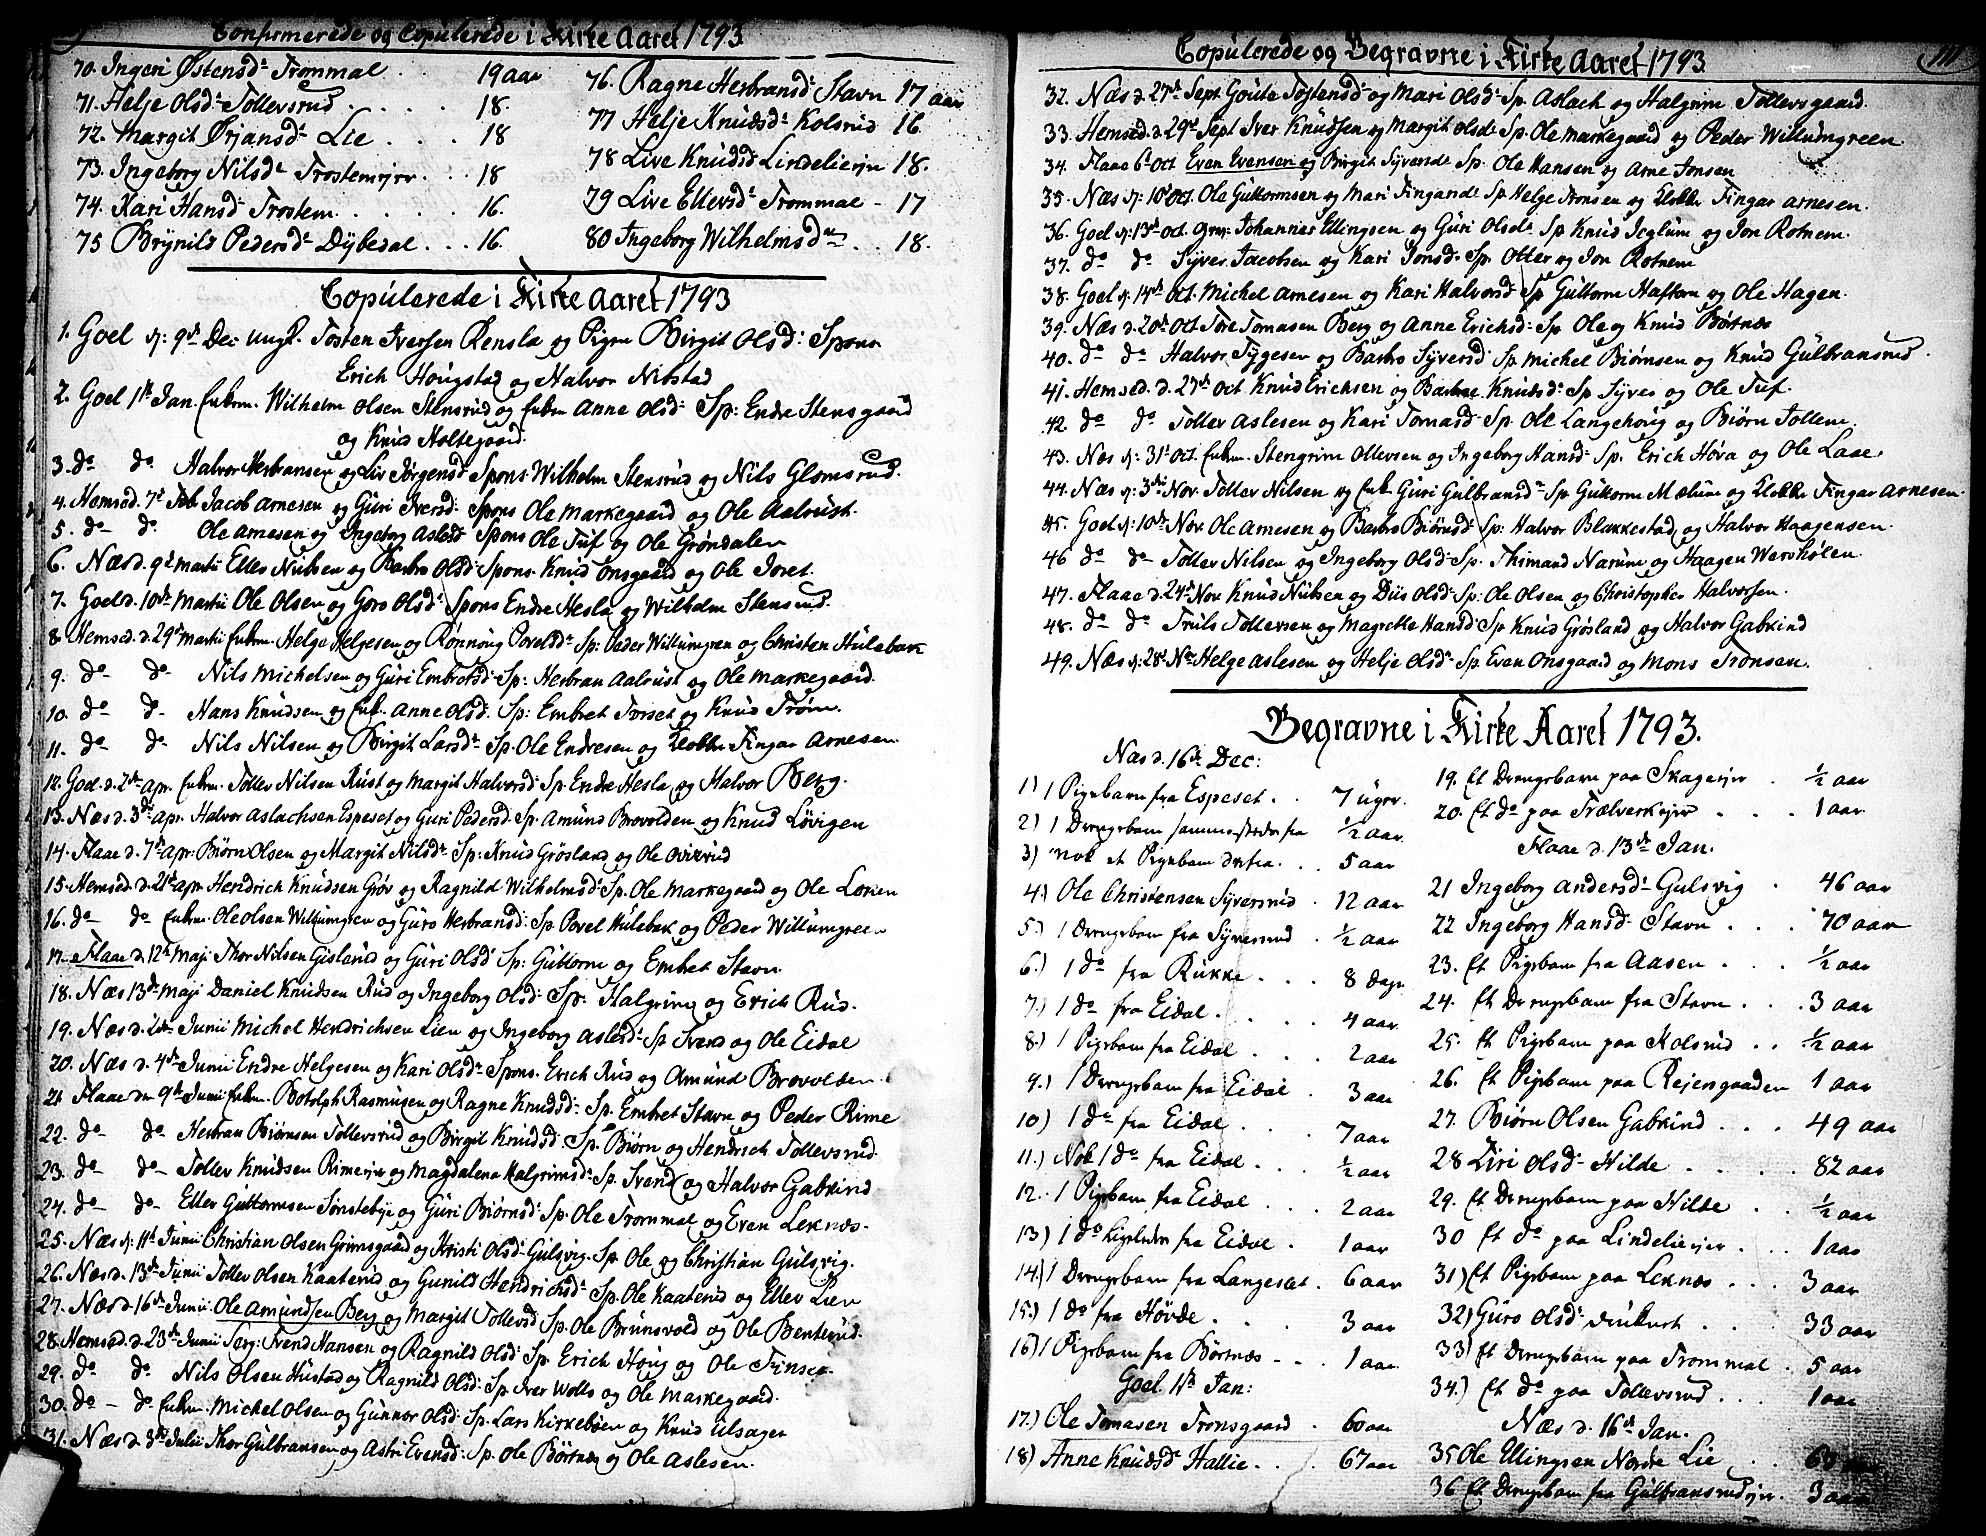 Confirmerede og Copulerede i Kirke Aaret 1793
70. Ingeri Østensd: Trommal . . 19 aar
71. Helje Olsd: Tollevsrud . . . . 18.
72. Margit Ørjansd: Lie . . . 18
73. Ingeborg Nilsd: Trostemejer . . 18
74. Kari Hansd: Trostem . . . . 16.
75 Brynild Pedersd: Dybedal . . . 16.
76. Ragne Herbransd: Stavn 17 aar
77 Helje Knudsd: Kolsrud 16.
78 Live Knudsd Lindelierjn 18.
79 Live Ellevsd: Trommal - 17
80 Ingeborg Wilhelmsd . . 18.
Copulerede i Kirke Aaret 1793
1. Goel d: 9de Dec: ungk. Tosten Iversen Rensla og Pigen Birgit Olsd: Spons
Erich Hougstad og Halvor Nibstad
2. Goel 1te Jan. Enkm. Wilhelm Olsen Stensrud og Enken Anne Olsd: Sp: Endre Stensgaard
og Knud Holtegaard.
3. do do. Halvor Herbransen og Liv Jørgensd: Spons: Wilhelm Stensrud og Nils Glomsrud.
4. Hemsed. 7de Febr Jacob Arnesen og Guri Iversd: Spons Ole Markegaard og Ole Aalrust.
5. do do Ole Arnesen og Ingeborg Aslesd Spons Ole Tuf og Ole Grøndalen
6. Næs d. 9de Martii Ellev Nubsen og Barbro Olsd: Spons. Knud Onsgaard og Ole Joret.
7. Goel d. 10de Martii Ole Olsen og Goro Olsd: Spons Endre Hesla og Wilhelm Stensrud.
8 Hemsed. d. 29de Martii Enkm. Helge Helgesen og Rønnoug Povelsd: Sp: Peder Willumgreen og Christen Hulebak
9. do do Nils Michelsen og Guri Embretsd: Sp: Herbran Aalrust og Ole Markegaard.
10. do d- Hans Knudsen og Enk. Anne Olsd: Sp: Embret Torset og Knud Trøim.
11. do do- Nils Nilsen og Birgit Larsd: Sp. Ole Endresen og Klokker Fingar Arnesen
12. Goel. d. 2de Apr. Enkm. Tollev Nilsen Rust og Margit Halvorsd: Sp. Endre Hesla og Halvor Berg.
13. Næs d. 3de Apr. Halvor Aslachsen Espeset og Guri Pedersd: Sp. Amund Brovolden og Knud Løvigen
14. Flaae d. 7de Apr: Biørn Olsen og Margit Nilsd: Sp: Knud Grøsland og Ole Oevrevid
15. Hemsed. d. 21de Apr. Hendrich Knudsen Grøv og Ragnild Wilhelmsd: Sp. Ole Markegaard og Ole Loken
16. do- do Enkm. Ole Olsen Willumgren og Guro Herbransd: Sp. Povel Hulebak og Peder Willumgreen
17. Flaae d. 12te Maji Thor Nilsen Gislerud og Guri Olsd: Sp: Guttorm og Embret Stavn
18. Næs 13de Maji Daniel Knudsen Rud og Ingeborg Olsd: Sp: Halgrim og Erich Rud.
19. Næs d. 2de Junii Michel Hendrichsen Lien og Ingeborg Aslesd: Sp Svend og Ole Eidal
20. Næs d. 4de Junii Endre Helgesen og Kari Olsd: Spons. Erich Rud og Amund Brovolden.
21 Flaae den 9de Junii Enkm. Botolph Rasmusen og Ragne Knudsd: Sp. Embret Stavn og Peder Rime
22. do- do- Herbran Biørnsen Tollevsrud og Birgit Knudsd: Sp. Biørn og Hendrich Tollevsrud
23. do- do- Tollev Knudsen Rimeejer og Magdalena Halgrimsd: Sp. Svend og Halvor Gabkind
24. do- do- Ellev Guttormsen Sønsteby og Guri Biørnsd: Sp. Ole Trommal og Even Leknæs.
25. Næs d: 11te Junii Christian Olsen Grimsgaard og Kristi Olsd: Gulsvig. Sp. Ole og Christian Gulsvig.
26. Næs d. 13de Junii Tollev Olsen Kaaterud og Gunild Hendrichsd: Sp. Ole Kaaterud og Ellev Lien
27. Næs d. 16de Junii. Ole Amundsen Berg og Margit Tollevsd: Sp. Ole Brunsvold og Ole Benterud.
28. Hemsed. d. 23de Junii Serg: Svend Hansen og Ragnild Olsd: Sp. Erich Houg og Ole Finset.
29. do do. Nils Olsen Hustad og Ragnild Olsd: Sp. Iver Wollo og Ole Markegaard.
30. do - do. Enkm. Michel Olsen og Gunnor Olsd: Sp. Lars Kirkebøen og Knud Ulsager
31. Næs d. 3de Julii Thor Gulbransen og Astri Evensd: Sp. Ole Børtnes og Ole Aslesen.
Copulerede og Begravne i Kirke Aaret 1793.
111
32. Næs d. 27de Sept. Goute Tostensd: og Mari Olsd: Sp. Aslach og Halgrim Tollevsgaard.
33. Hemsed. d. 29de Sept Iver Knudsen og Margit Olsd: Sp. Ole Markegaard og Peder Willumgreen
34. Flaae 6te Oct Even Evensen og Birgit Syversd: Sp. Ole Hansen og Arne Jonsen
35. Næs d: 10de Oct. Ole Guttormsen og Mari Fingarsd: Sp. Helge Tronsen og Klokker Fingar Arnesen.
36. Goel d: 13de Oct. Grm: Johannes Ellingsen og Guri Olsd: Sp Knud Jeglum og Jon Rotnem.
37. do do Syver Jacobsen og Kari Jonsd: Sp. Otter og Jon Rotnem
38. Goel d: 14de Oct. Michel Arnesen og Kari Halvorsd: Sp Guttorm Haftorn og Ole Hagen.
39. Næs d. 20de Oct Tore Tomasen Berg og Anne Erichsd: Sp. Ole og Knud Børtnes
40. do- do Halvor Tygesen og Barbro Syversd: Sp. Michel Biørnsen og Knud Gulbransrud.
41. Hemsed. d. 27de Oct Knud Erichsen og Barbroe Knudsd: Sp Syver og Ole Tuf.
42. do do. Tollev Aslesen og Kari Tomasd: Sp. Ole Langehoug og Biørn Tollem.
43. Næs d: 31te Oct. Enkm. Stengrim Ollevsen og Ingeborg Hansd: Sp. Erich Hova og Ole Laae.
44. Næs d: 3de Nov. Tollev Nilsen og Enk. Guri Gulbransd: Sp. Guttorm Mælum og Klokker Fingar Arnesen.
45. Goel d: 10de Nov. Ole Arnesen og Barbro Biørnsd: Sp: Halvor Blakkestad og Halvor Haagensen.
46 do do- Tollev Nilsen og Ingeborg Olsd: Sp. Thimand Narum og Haagen Wershølen.
47. Flaae d. 24de Nov Knud Nubsen og Diis Olsd: Sp: Ole Olsen og Christopher Halvorsen.
48. do- do Truls Tollevsen og Magrethe Hansd: Sp Knud Grøsland og Halvor Gabkind
49. Næs d: 28de Nov Helge Aslesen og Helje Olsd: Sp. Even Onsgaard og Mons Tronsen.
Begravne i Kirke Aaret 1793.
Næs d. 16de Dec:
1) 1 Pigebarn fra Espeset . . 7 uger.
2) 1 Drengebarn sammestedes fra ½ aar
3) nok et Pigebarn derfra . . 5 aar
4.) Ole Christensen Syversrud . 12 aar
5.) 1 Drengebarn fra Syversrud . ½ aar
6.) 1 do fra Rukke . . . 8 dage
7.) 1 do fra Eidal . . . . 4 aar
8.) 1 Pigebarn fra Eidal . . . 2 aar
9.) 1 Drengebarn fra Eidal . 3 aar
10) 1 do fra Eidal . . . 7 aar
11.) Nok 1 do fra Eidal . . . ½ aar
12. 1 Pigebarn fra Eidal . . . 2 aar
13) 1 do ligeledes fra Eidal . 1 aar
14.) 1 Drengebarn fra Langeset . 6 aar
15.) 1 do fra Hovde . . . 3 aar
16) 1 Pigebarn fra Børtnæs - - . 1 aar
Goel. 1te Jan:
17.) Ole Tomasen Tronsgaard . 60 aar
18) Anne Knudsd: Hallie . . . 67 aar
19. Et Drengebarn paa Skageejer . ½ aar
20. Et do paa Trælverkejer . . . 1 aar
Flaae d. 13de Jan.
21 Ingeborg Andersd: Gulsvig . 46 aar
22 Ingeborg Hansd: Stavn . . . 70 aar
23. Et Pigebarn fra Aasen . . . ½ aar
24. Et Drengebarn fra Stavn . . . 3 aar
25. Et Pigebarn paa Kolsrud . . ½ aar
26. Et Pigebarn paa Rejersgaarden 1 aar
27. Biørn Olsen Gabkind . . . 49 aar
28 Liri Olsd: Hilde . . . . 82 aar
29. Et Drengebarn paa Hilde . . ½ aar
30 Et do paa Lindelieejer . . . 1 aar
31) Et Pigebarn paa Leknæs . . . 3 aar
32) Guro Olsd: . . . 33 aar
33) Et Drengebarn paa Trommal . 5 aar
34.) Et do paa Tollevsrud . . . 1 aar
Næs d. 16de Jan.
35 Ole Ellingsen Nordre Lie . . 63
36 Et Drengebarn fra Gulbransrudejer. 3 aar